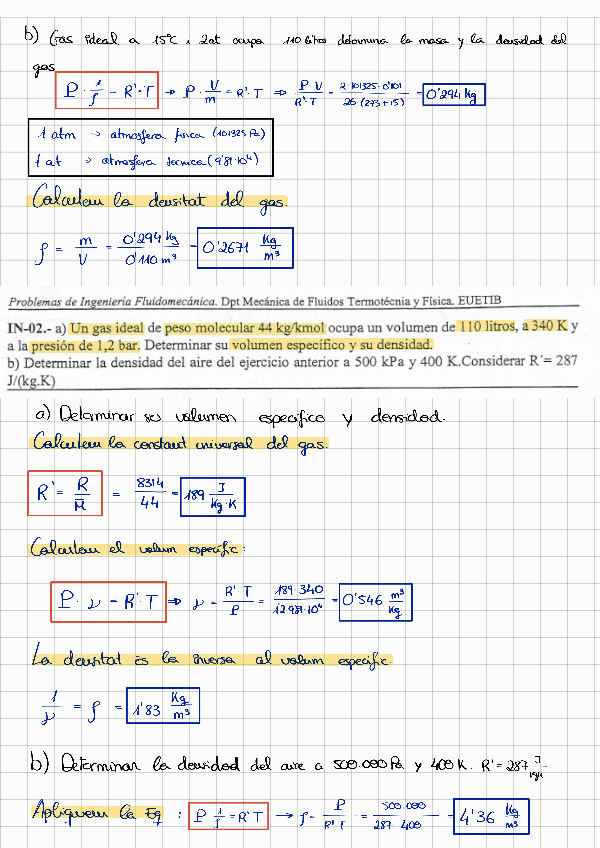 b) Gas ideal a 15ºC i 2at ocupa 110 litros determina la masa y la densidad del
gas
P · 1/ρ = R'·T → P · V/m = R'·T ⇒ P V / R'·T = 2·101325·0'101 / 26·(273+15) = 0'294 Kg
1 atm → atmosfera fisica (101325 Pa)
1 at → atmosfera tecnica (9'81·10⁴)
Calculem la densitat del gas.
ρ = m/V = 0'294 kg / 0'110 m³ = 0'2671 Kg/m³
Problemas de Ingeniería Fluidomecánica. Dpt Mecánica de Fluidos Termotécnia y Física. EUETIB
IN-02.- a) Un gas ideal de peso molecular 44 kg/kmol ocupa un volumen de 110 litros, a 340 K y
a la presión de 1,2 bar. Determinar su volumen específico y su densidad.
b) Determinar la densidad del aire del ejercicio anterior a 500 kPa y 400 K.Considerar R´= 287
J/(kg.K)
a) Determinar su volumen especifico y densidad.
Calculem la constant universal del gas.
R' = R/M = 8314/44 = 189 J/Kg·K
Calculem el volum especific:
P · ν = R'·T ⇒ ν = R'·T / P = 189·340 / = 0'546 m³/Kg
La densitat és la inversa al volum especific.
1/ν = ρ = 1'83 Kg/m³
b) Determinar la densidad del aire a 500.000 Pa y 400 K. R' = 287 J/kgK
Apliquem la Eq : P 1/ρ = R'T → ρ = P / R'T = 500.000 / 287·400 = 4'36 Kg/m³